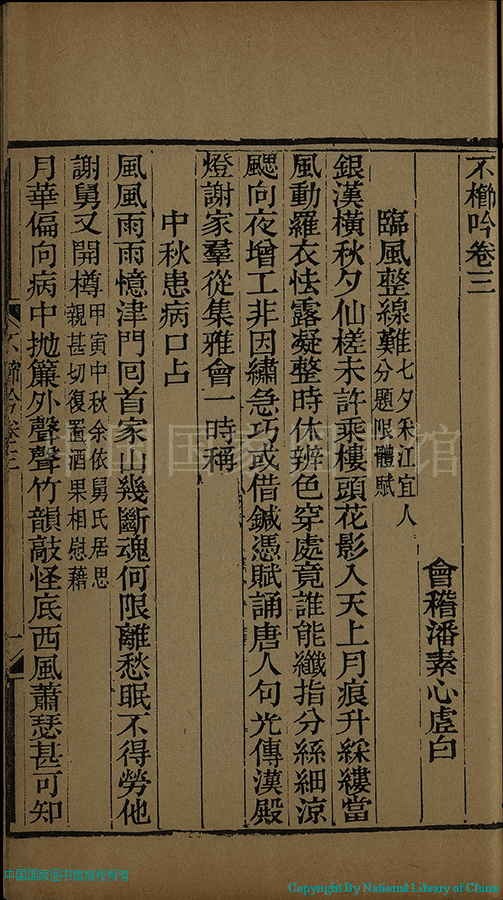 不櫛吟卷三
會稽潘素心虛白
臨風整線難七夕宋江宜人分題限體賦
銀漢橫秋夕仙槎未許乘樓頭花影入天上月痕升綵縷當
風動羅衣怯露凝整時休辨色穿處竟誰能纖指分絲細涼
颸向夜增工非因繡急巧或借鍼憑賦誦唐人句光傳漢殿
燈謝家羣從集雅會一時稱
中秋患病口占
風風雨雨憶津門囘首家山幾斷魂何限離愁眠不得勞他
謝舅又開樽甲寅中秋余依舅氏居思親甚切復置酒果相慰藉
月華偏向病中拋簾外聲聲竹韻敲怪底西風蕭瑟甚可知
不櫛吟卷三
一
中国国家图书馆
中国国家图书馆藏版所有
Copyright By National Library of China